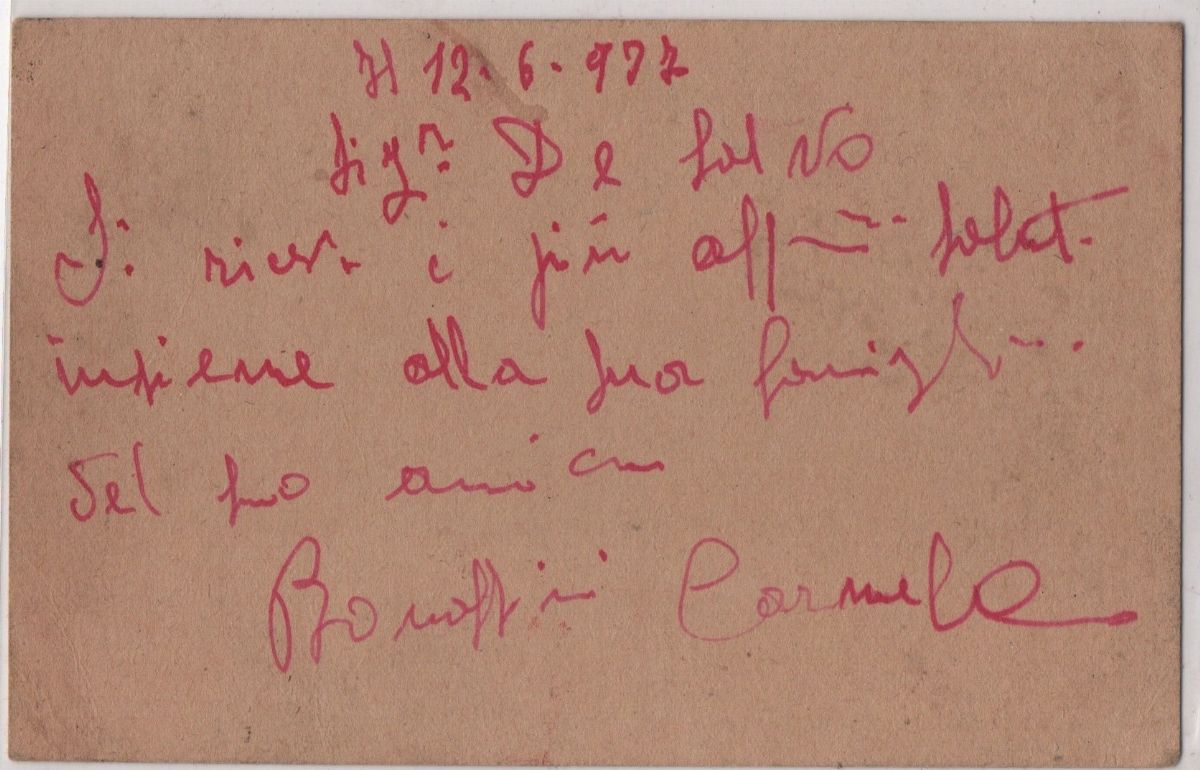 Il 12.6.977
Sigr. De Salvo
Si ricev. i più aff salut.
insieme alla sua famigl...
del suo amico
Carmelo